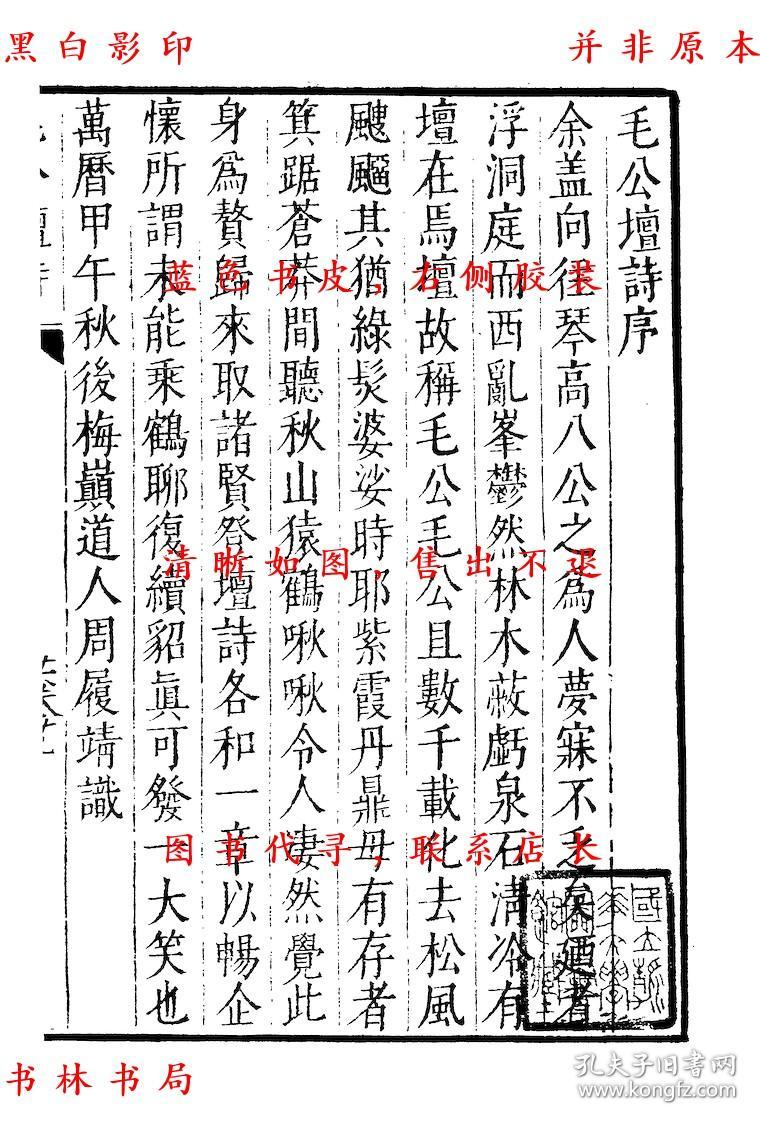 黑白影印
并非原本
毛公壇詩序
余盖向往琴高八公之爲人夢寐不乏矣廼者
浮洞庭而西亂峯鬱然林木蔽虧泉石清冷有
壇在焉壇故稱毛公毛公且數千載化去松風
颼飀其猶綠髮婆娑時耶紫霞丹鼎毋有存者
箕踞蒼莽間聽秋山猿鶴啾啾令人凄然覺此
身爲贅歸來取諸賢登壇詩各和一章以暢企
懷所謂未能乘鶴聊復續貂眞可發一大笑也
萬曆甲午秋後梅巔道人周履靖識
蓝色书皮,右侧胶装
清晰如图,售出不退
图书代寻,联系店长
书林书局
孔夫子旧书网
www.kongfz.com